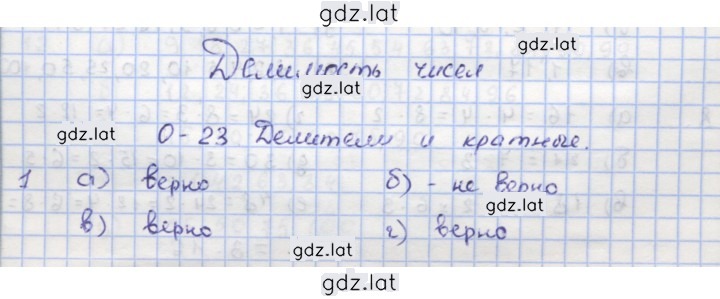 gdz.lat
gdz.lat
Делимость чисел
gdz.lat
О-23 Делители и кратные.
1 а) верно б) - не верно
gdz.lat
в) верно г) верно
gdz.lat
gdz.lat